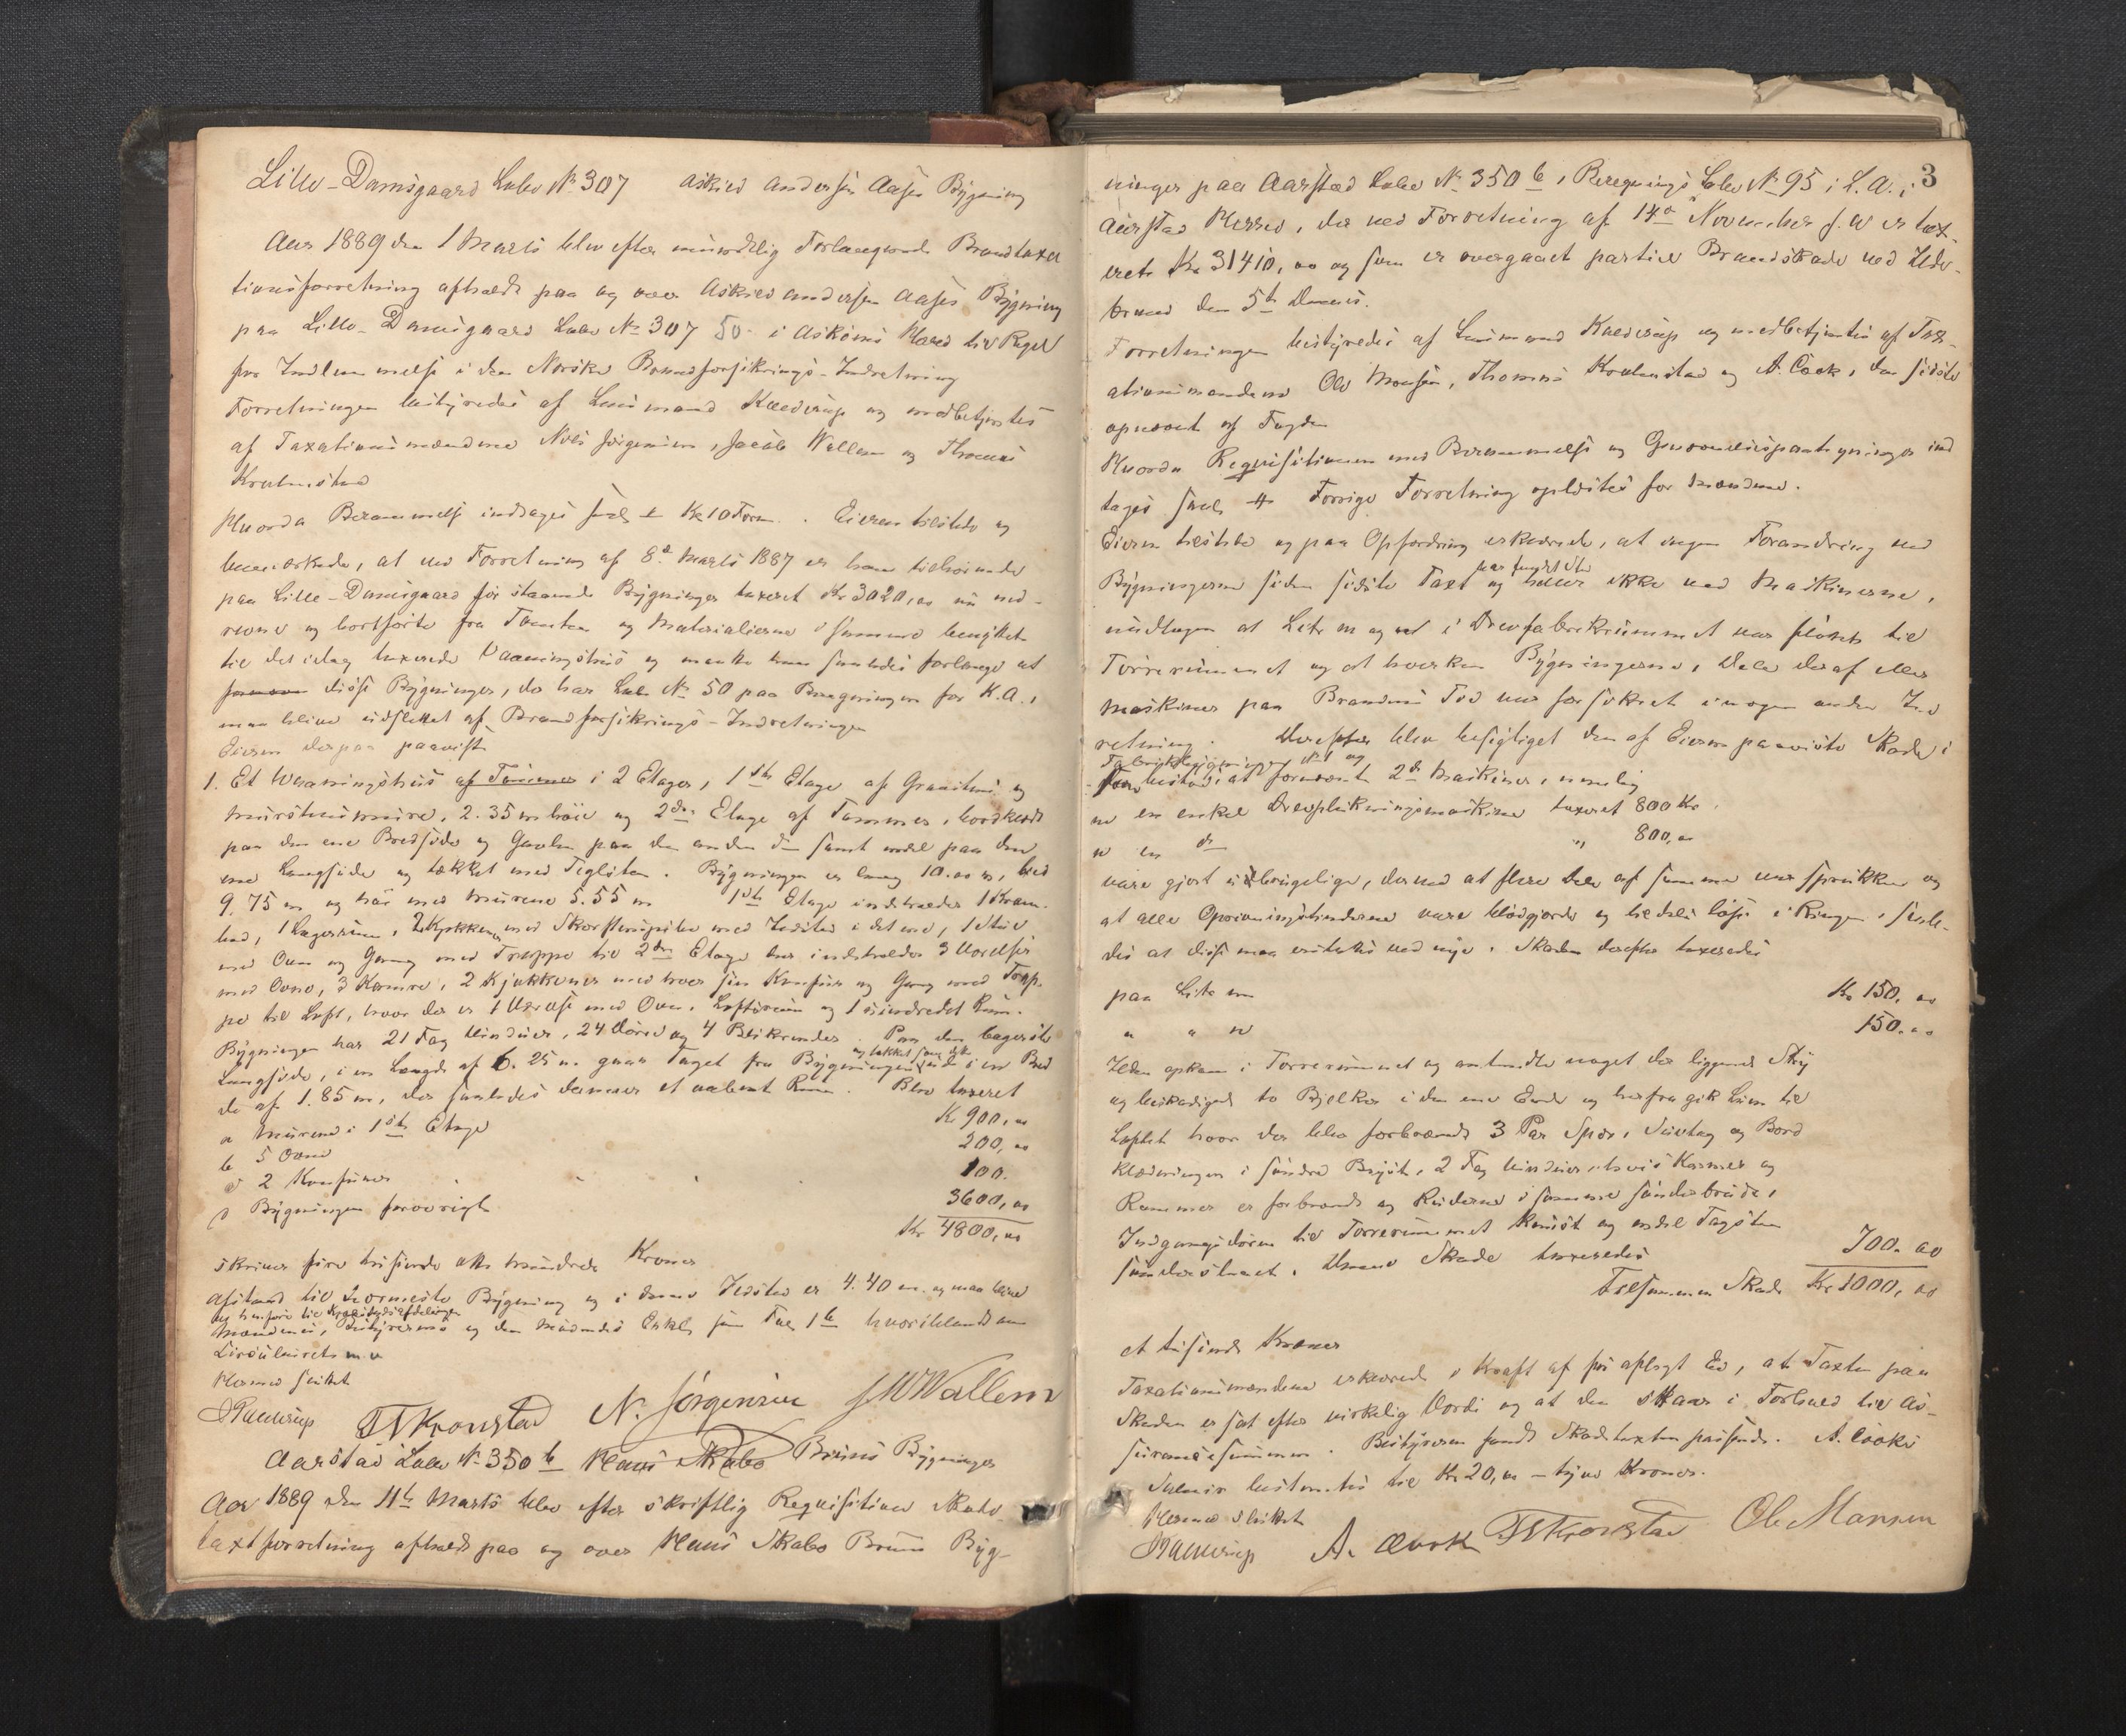 Lille-Damsgaard Løbe No 307 Askild Andersen Aases Bygning
Aar 1889 den 1 Marts blev efter mundtlig Forlangende Brandtaxa
tionsforretning afholdt paa og over Askild Andersen Aases Bygning
paa Lille-Damsgaard Løbe No 307 50 i Askøens Hered
for Indlemmelse i den Norske Brandforsikrings-Indretning
Forretningen bestyredes af Lensmand og medbetjentes
af Taxationsmændene Nils Jørgensen, Jacob Wallem og Thomas
Kronstad
Hvorda Berammelse indtages Kr 10 . Eieren tilstede og
bemærkede, at ved Forretning af 8de Marts 1887 er ham tilhørende
paa Lille-Damsgaard før staaende Bygninger taxeret Kr 3020,00 nu ned-
revne og bortførte fra Tomten og Materialierne i samme benyttet
til det idag taxerede Vaaningshus og maatte han saaledes forlange at
disse Bygninger, der har Løb No 50 paa Beregningen for K.A.,
maa blive udslettet af Brandforsikrings-Indretningen
Eieren derpaa paaviste
1. Et Vaaningshus af Tømmer i 2 Etager, 1ste Etage af Graasten og
murstensmure, 2.35 m høie og 2den Etage af Tømmer, bordklædt
paa den ene Bredside og Gavlen paa den anden samt endel paa den
ene Langside og tækket med Teglsten. Bygningen er lang 10.00 m, bred
9.75 m og høi med murene 5.55 m 1ste Etage indeholder 1 Kram-
bod, 1 Lagerrum, 2 Kjøkkener med Skorstenspibe med Ildsted i det ene, 1 Stue
med Ovn og Gang med Trappe til 2den Etage der indeholder 3 Værelser
med Ovne, 3 Kamre, 2 Kjøkkener med hver sin Komfur og Gang med Trap-
pe til Loft, hvor der er 1 Værelse med Ovn, Loftsrum og 1 uindredet Rum.
Bygningen har 21 Fag Vinduer, 24 Døre og 4 Blikrender. Paa den bagerste
og tækket som det
Langside, i en Længde af 6.25 m. gaar Taget fra Bygningen ud i en Bred
de af 1.85 m, der saaledes danner et aabent Rum. Blev taxeret
a Murene i 1ste Etage Kr 900,00
b 5 Ovne 200,00
c 2 Komfurer 100.
d Bygningen forøvrigt 3600,00
Kr 4800,00
skriver fire tusinde otte hundrede Kroner
Afstand til nærmeste Bygning og i denne Ildsted er 4.40 m. og maa blive
at henføre til
Mændenes, Bestyrerens og den Mundtlige
Circulairets m v
Hermed sluttet
T S Kronstad N. Jørgensen J W Wallem
Aarstad Løbe No 350 b Klaus Skabo Bruns Bygninger
Aar 1889 den 11te Marts blev efter skriftlig Requisition Skade
taxtforretning afholdt paa og over Klaus Skabo Bruns Byg-
3
ninger paa Aarstad Løbe No 350 b, Beregnings Løbe No 95 i L.A. i
Aarstad Herred, der ved Forretning af 14de November f. A er tax-
eret Kr 31410,00 og som er overgaaet partiel Brandskade ved Ilds-
brand den 5te dennes.
Forretningen bestyredes af Lensmand og medbetjentes af Tax-
ationsmændene Ole Monsen, Thomas Kronstad og A. Cook, den sidste
opnævnt af Fogden
Hvorda Requisitionen med Berammelse og Gjenpartspaategninger ind
tages Forrige Forretning oplæstes for Mændene.
Eieren tilstede og paa Opfordring erklærede, at ingen Forandring ved
har fundet Sted
Bygningerne siden sidste Taxt og heller ikke ved Maskinerne,
undtagen at Litr m og n i Drevfabrikrummet var flyttet til
Tørrerummet og at hverken Bygningerne, Dele deraf eller
Maskiner paa Brandens Tid var forsikret i nogen anden Ind
retning. Derefter blev besigtiget den af Eieren paaviste Skade i
Fabrikbygningen No 1 og
fandtes at forannævnte 2de Maskiner, nemlig
m en enkel Drevplukningsmaskine taxeret 800 Kr.
n en do " 800,00
vare gjort ubrugelige, derved at flere Dele af samme var sprukken og
at alle Oprivningstænderne vare blødgjorde og tildels løse i Ringen, saale-
des at disse maa erstattes ved nye. Skaden derefter taxeredes
paa Litr m Kr 150,00
" " n 150.00
Ilden opkom i Tørrerummet og antændte noget der liggende Stry
og beskadigede to Bjelker i den ene Ende og herfra gik Luen til
Loftet hvor der blev forbrændt 3 Par Sper, Sutag og Bord
klædningen i søndre Bryst, 2 Fag Vinduer, hvis Karmer og
Rammer er forbrændt og Ruderne i samme sønderbrudt,
Indgangsdøren til Tørrerummet knust og endel Tagsten
sønderslaaet. Denne Skade taxeredes 700.00
Tilsammen Skade Kr 1000,00
et tusinde Kroner
Taxationsmændene erklærede i Kraft af før aflagt Ed, at Taxten paa
Skaden er sat efter virkelig Værdi og at den staar i Forhold til As-
surancesummen. Bestyreren fandt Skadetaxten passende. A. Cooks
Salair bestemtes til Kr 20,00 – tyve Kroner.
Hermed sluttet
A. Cook T S Kronstad Ole Monsen